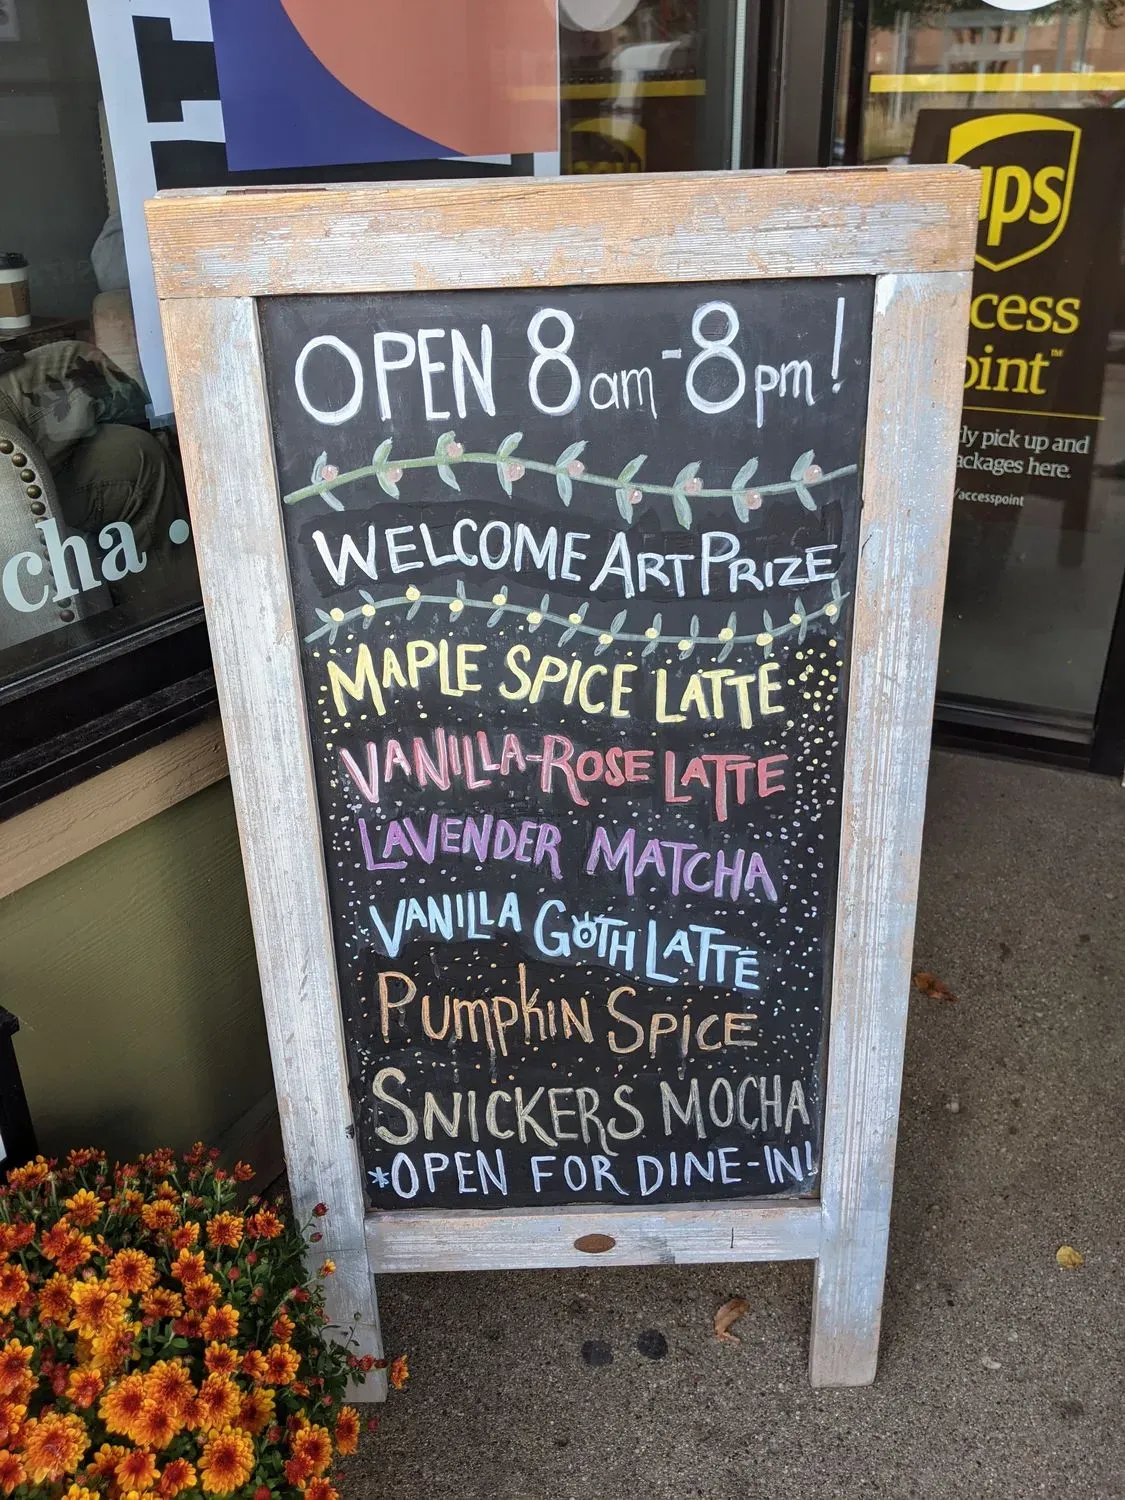 OPEN 8am-8pm!
WELCOME ARTPRIZE
MAPLE SPICE LATTE
VANILLA-ROSE LATTE
LAVENDER MATCHA
VANILLA GOTH LATTE
PUMPKIN SPICE
SNICKERS MOCHA
*OPEN FOR DINE-IN!
cha •
ups
cess
oint™
ly pick up and
ackages here.
/accesspoint